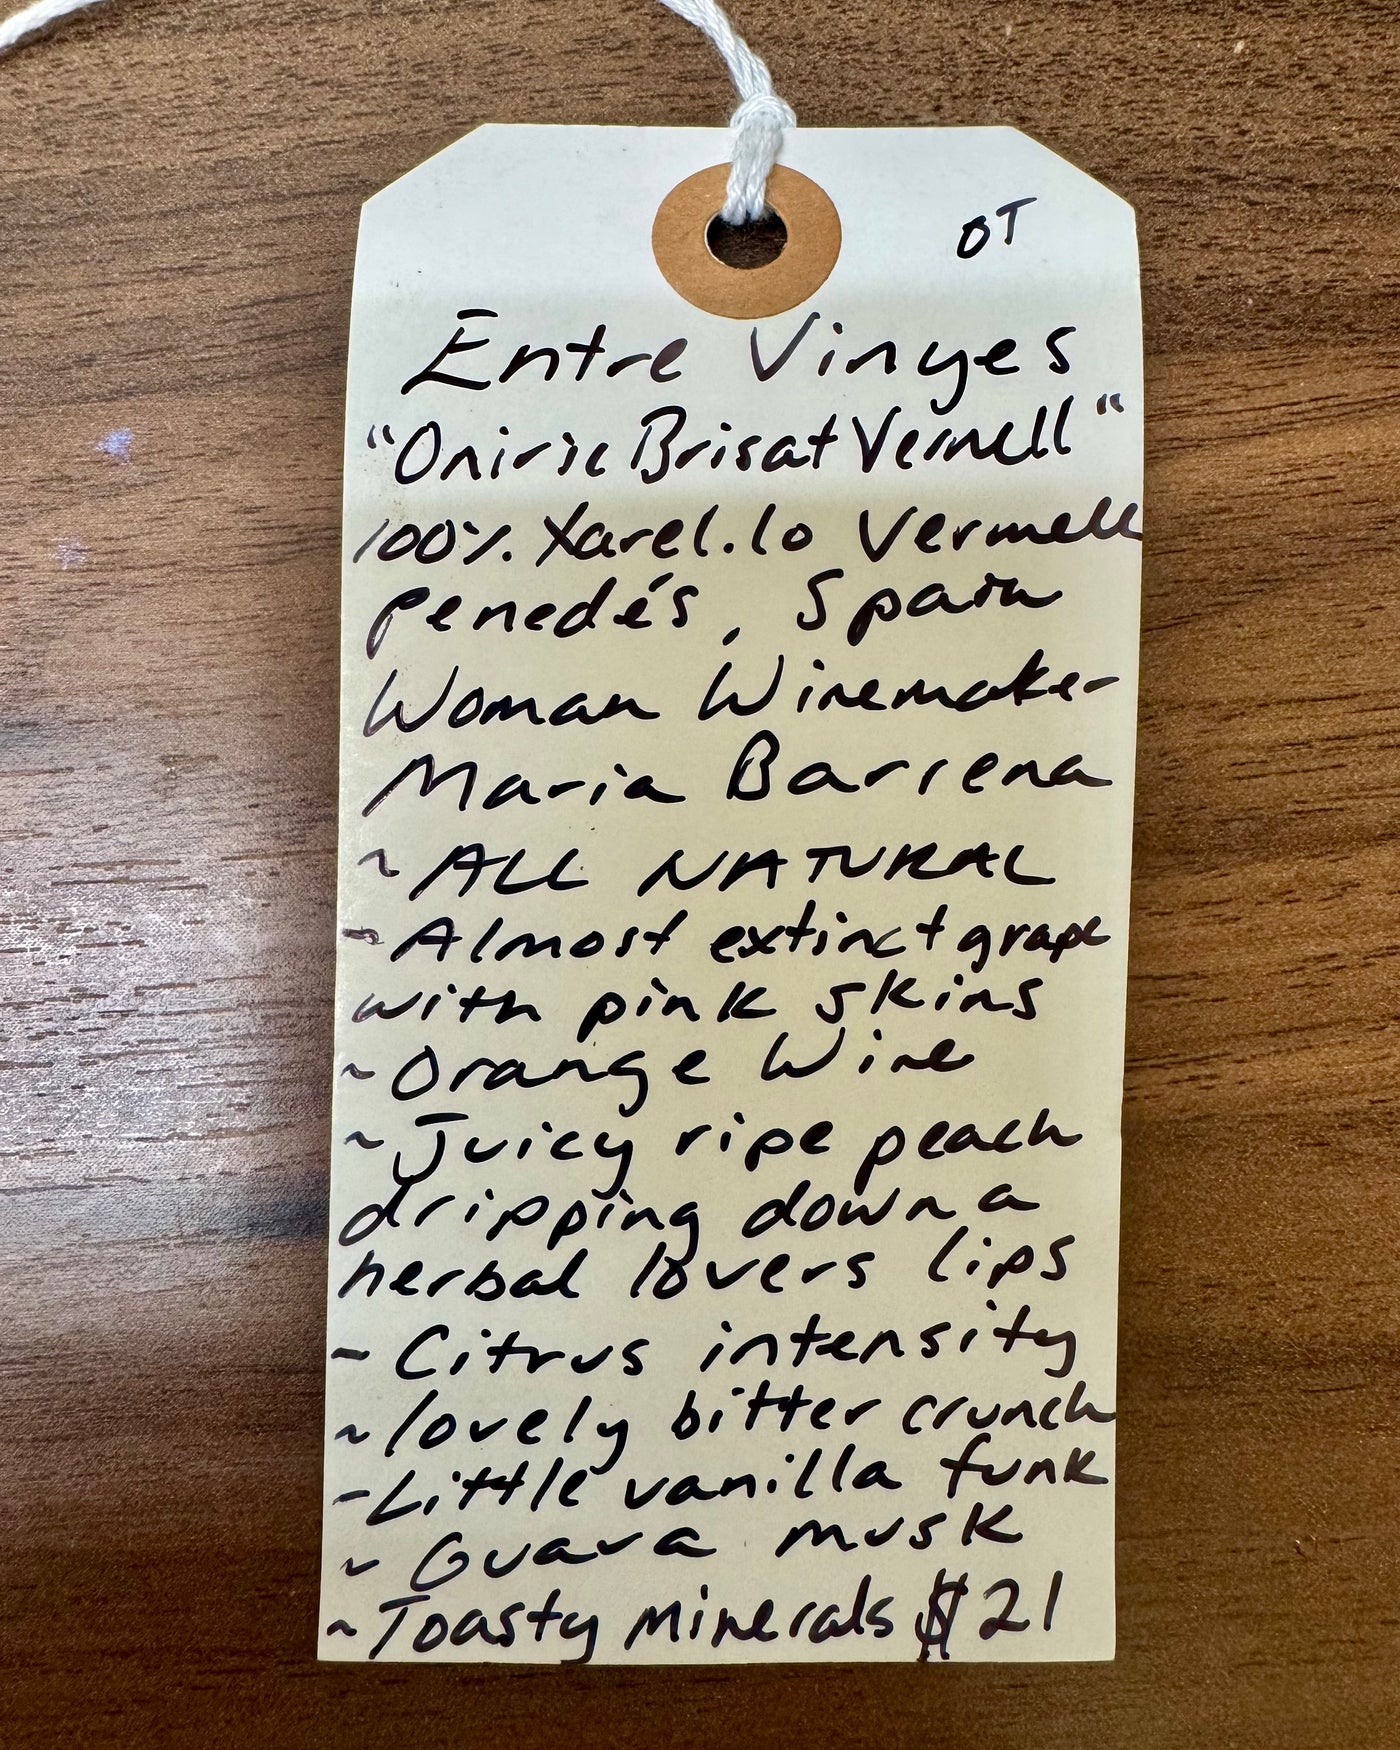 OT
Entre Vinyes
"Oniric Brisat Vermell"
100% Xarel.lo Vermell
Penedés, Spain
Woman Winemaker
Maria Barrena
~ ALL NATURAL
~ Almost extinct grape
with pink skins
~ Orange Wine
~ Juicy ripe peach
dripping down a
herbal lovers lips
~ Citrus intensity
~ lovely bitter crunch
~ Little vanilla funk
~ Guava musk
~ Toasty minerals $21